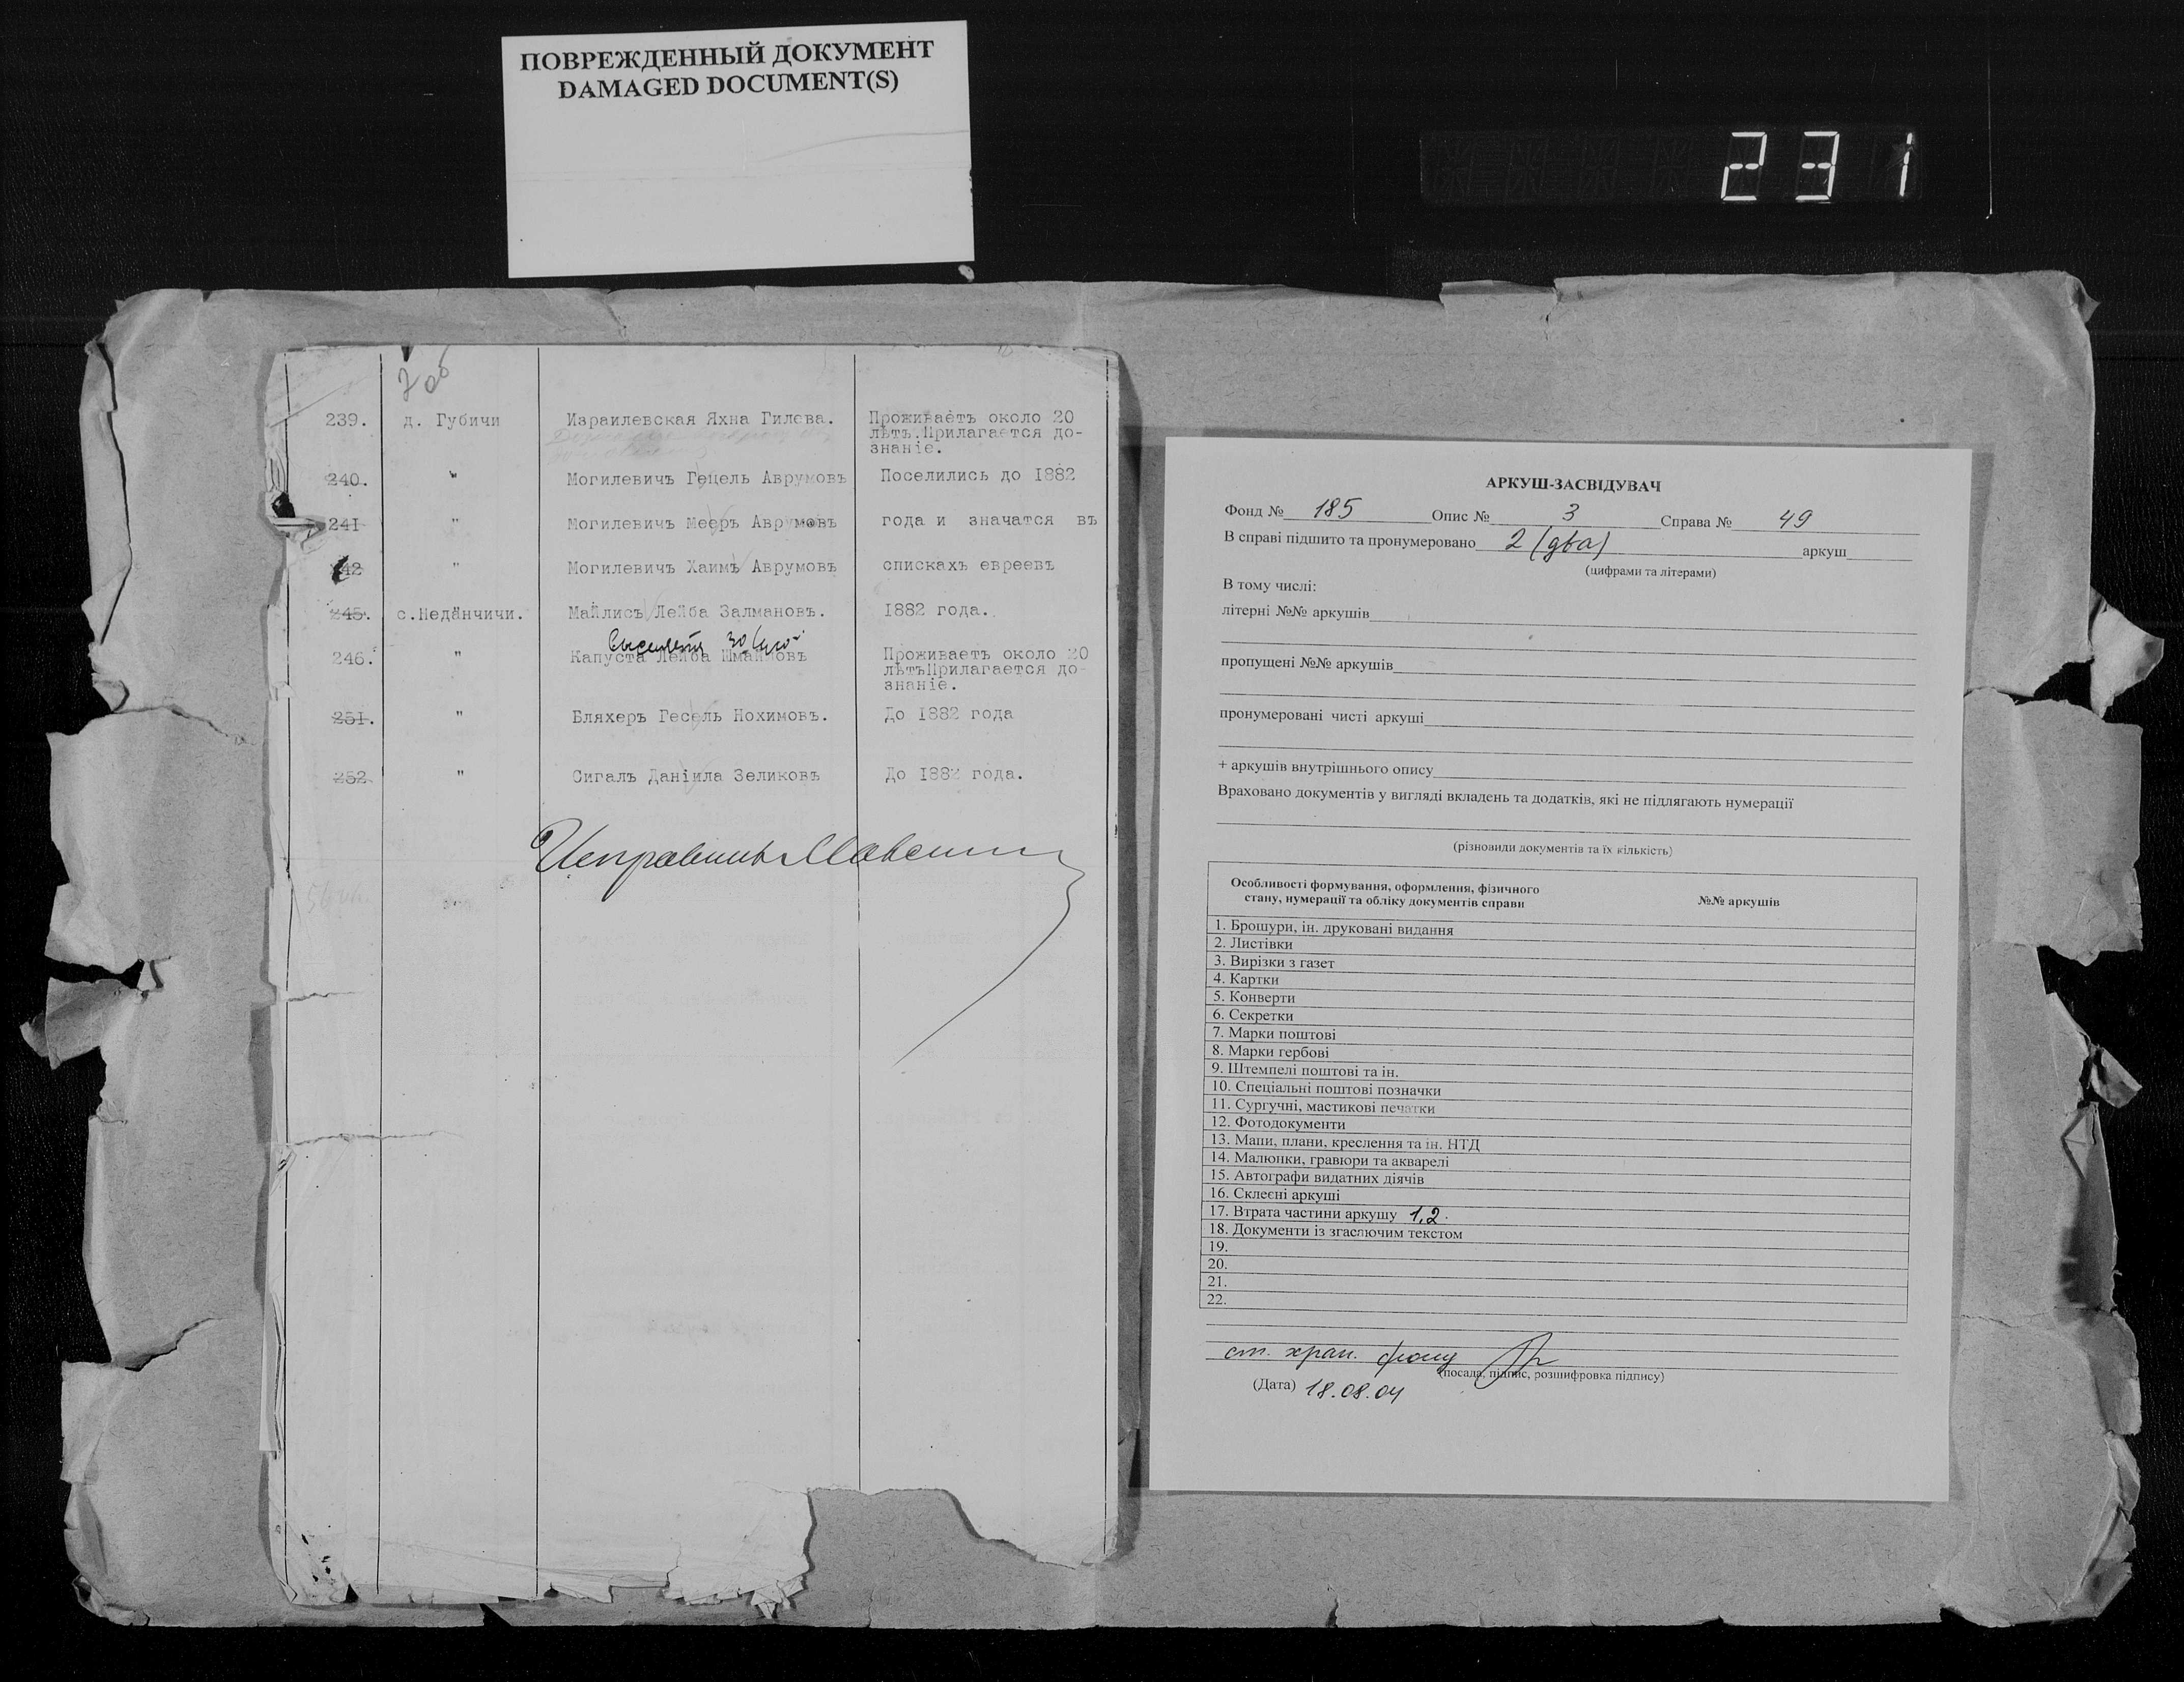 ПОВРЕЖДЕННЫЙ ДОКУМЕНТ
DAMAGED DOCUMENT(S)
231
2 об
239. д. Губичи Израилевская Яхна Гилева. Проживаетъ около 20
лѣтъ.Прилагается до-
знаніе.
240. " Могилевичъ Гецель Аврумовъ Поселились до 1882
241 " Могилевичъ Мееръ Аврумовъ года и значатся въ
242 " Могилевичъ Хаимъ Аврумовъ спискахъ евреевъ
245. с.Неданчичи. Майлисъ Лейба Залмановъ. 1882 года.
246. " Капуста Лейба Шмаиловъ Проживаетъ около 20
лѣтъПрилагается до-
знаніе.
251. " Бляхеръ Гесель Нохимовъ. До 1882 года
252 " Сигалъ Даніила Зеликовъ До 1882 года.
Исправникъ
АРКУШ-ЗАСВІДУВАЧ
Фонд № 185 Опис № 3 Справа № 49
В справі підшито та пронумеровано 2 (два) аркуш
(цифрами та літерами)
В тому числі:
літерні №№ аркушів
пропущені №№ аркушів
пронумеровані чисті аркуші
+ аркушів внутрішнього опису
Враховано документів у вигляді вкладень та додатків, які не підлягають нумерації
(різновиди документів та їх кількість)
Особливості формування, оформлення, фізичного
стану, нумерації та обліку документів справи №№ аркушів
1. Брошури, ін. друковані видання
2. Листівки
3. Вирізки з газет
4. Картки
5. Конверти
6. Секретки
7. Марки поштові
8. Марки гербові
9. Штемпелі поштові та ін.
10. Спеціальні поштові позначки
11. Сургучні, мастикові печатки
12. Фотодокументи
13. Мапи, плани, креслення та ін. НТД
14. Малюнки, гравюри та акварелі
15. Автографи видатних діячів
16. Склеєні аркуші
17. Втрата частини аркушу 1,2.
18. Документи із згасаючим текстом
19.
20.
21.
22.
ст. хран. фонд
(посада, підпис, розшифровка підпису)
(Дата) 18.08.04